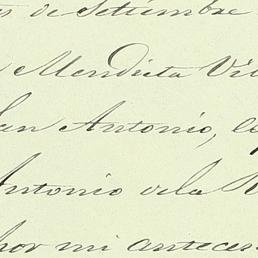 de Setiembre
Mendieta Vi
San Antonio, Co
Antonio dela R
por mi anteces